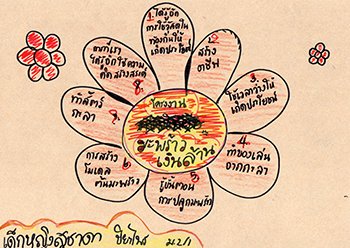 1. ได้รู้จัก
การใช้วัสดุใน
ท้องถิ่นให้
เกิดประโยชน์
2.
สร้าง
อาชีพ
3.
ใช้เวลาว่างให้
เกิดประโยชน์
4.
ทำของเล่น
จากกะลา
5.
รู้ขั้นตอน
การปลูกมะพร้าว
6.
การสร้าง
โมเดล
ต้นมะพร้าว
7.
ทำสัตว์
กะลา
8.
ได้รู้จักใช้ความ
คิดสร้างสรรค์
โครงงาน
มะพร้าว
เงินล้าน
เด็กหญิงสุชาดา